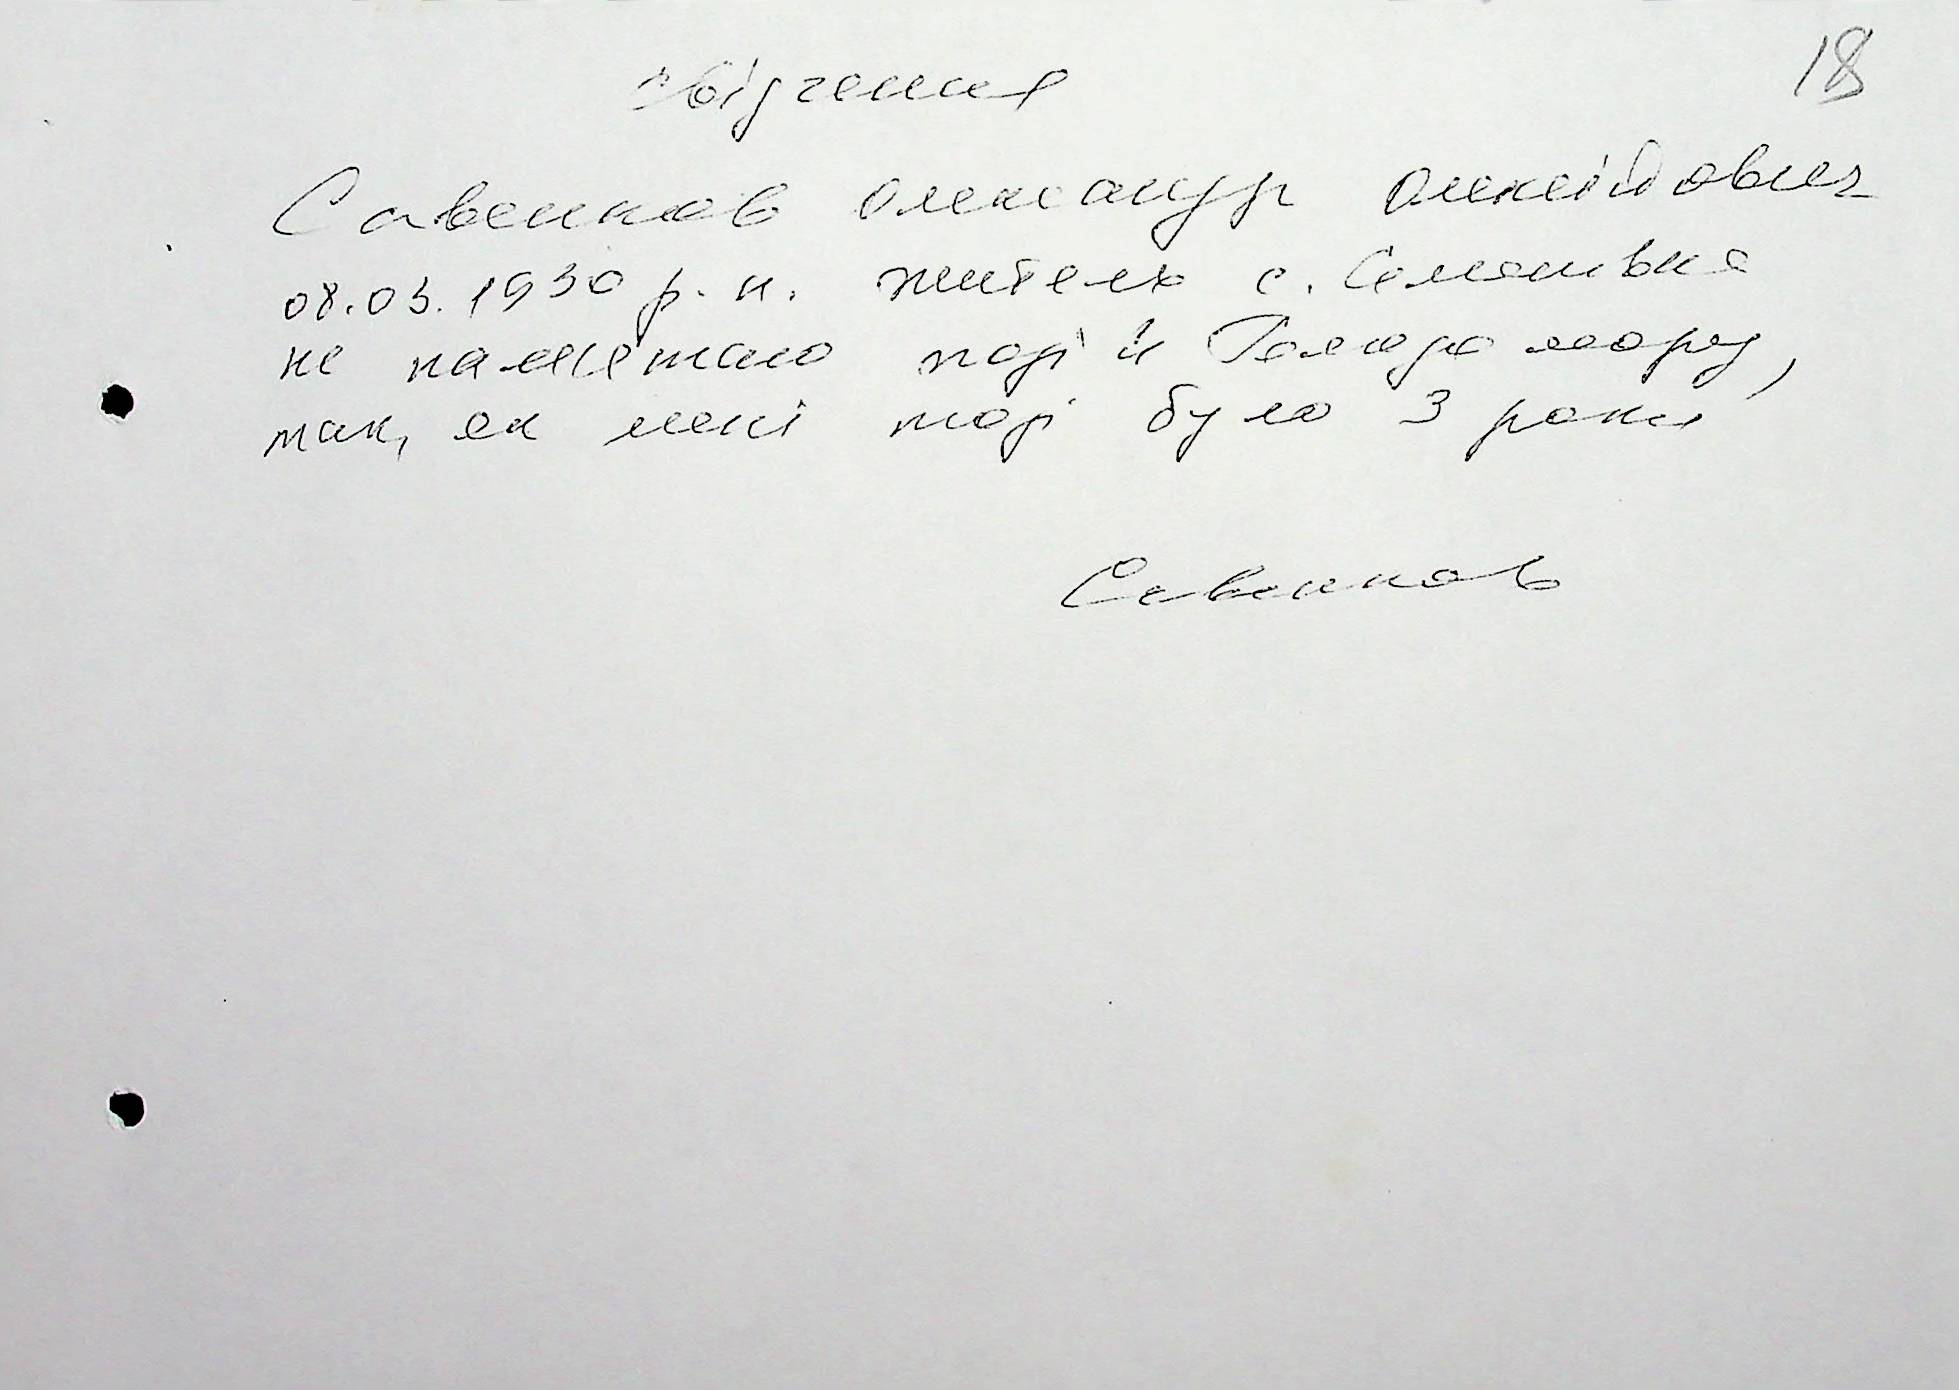 18
Свідчення
Савенков Олександр Олексійович
08.03.1930 р. н. житель с. Семенівка
не памєтаю подій Голодомору,
так, як мені тоді було 3 роки
Савенков